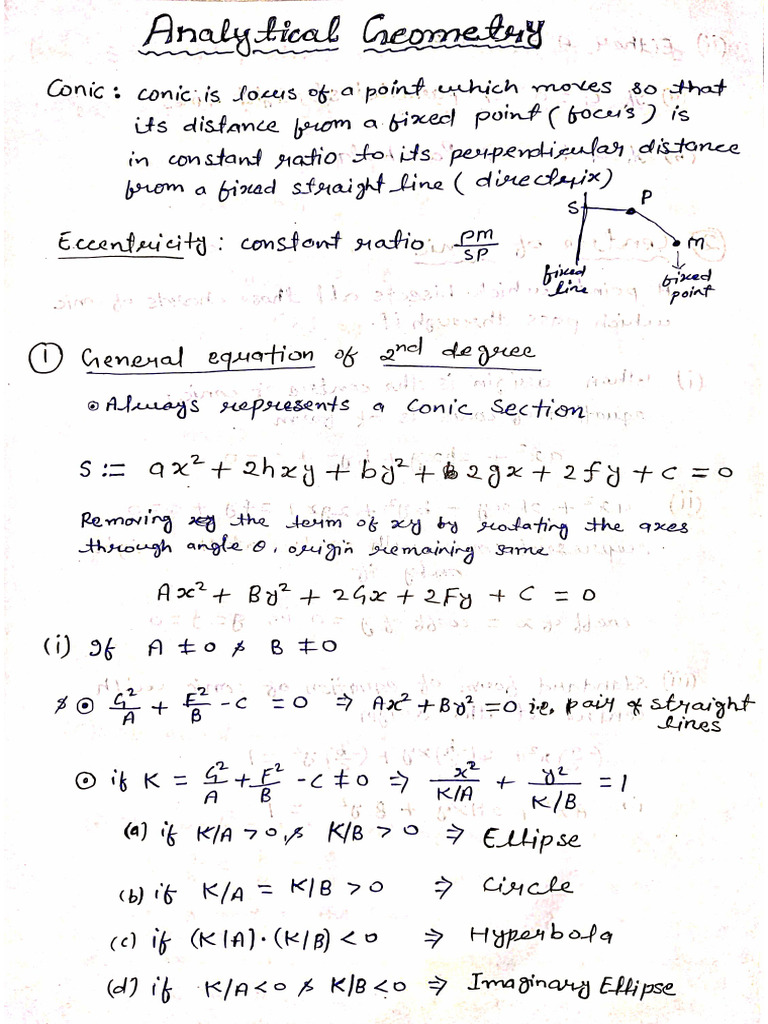 Analytical Geometry
Conic: conic is locus of a point which moves so that
its distance from a fixed point (focus) is
in constant ratio to its perpendicular distance
from a fixed straight line (directrix)
S P M
fixed line
fixed point
Eccentricity: constant ratio PM/SP
① General equation of 2nd degree
⊙ Always represents a conic section
S := ax² + 2hxy + by² + 2gx + 2fy + c = 0
Removing the term of xy by rotating the axes
through angle θ, origin remaining same
Ax² + By² + 2Gx + 2Fy + C = 0
(i) If A ≠ 0 & B ≠ 0
& ⊙ G²/A + F²/B - C = 0 ⇒ Ax² + By² = 0 i.e. pair of straight lines
⊙ if K = G²/A + F²/B - C ≠ 0 ⇒ x²/(K/A) + y²/(K/B) = 1
(a) if K/A > 0, & K/B > 0 ⇒ Ellipse
(b) if K/A = K/B > 0 ⇒ Circle
(c) if (K/A)·(K/B) < 0 ⇒ Hyperbola
(d) if K/A < 0 & K/B < 0 ⇒ Imaginary Ellipse